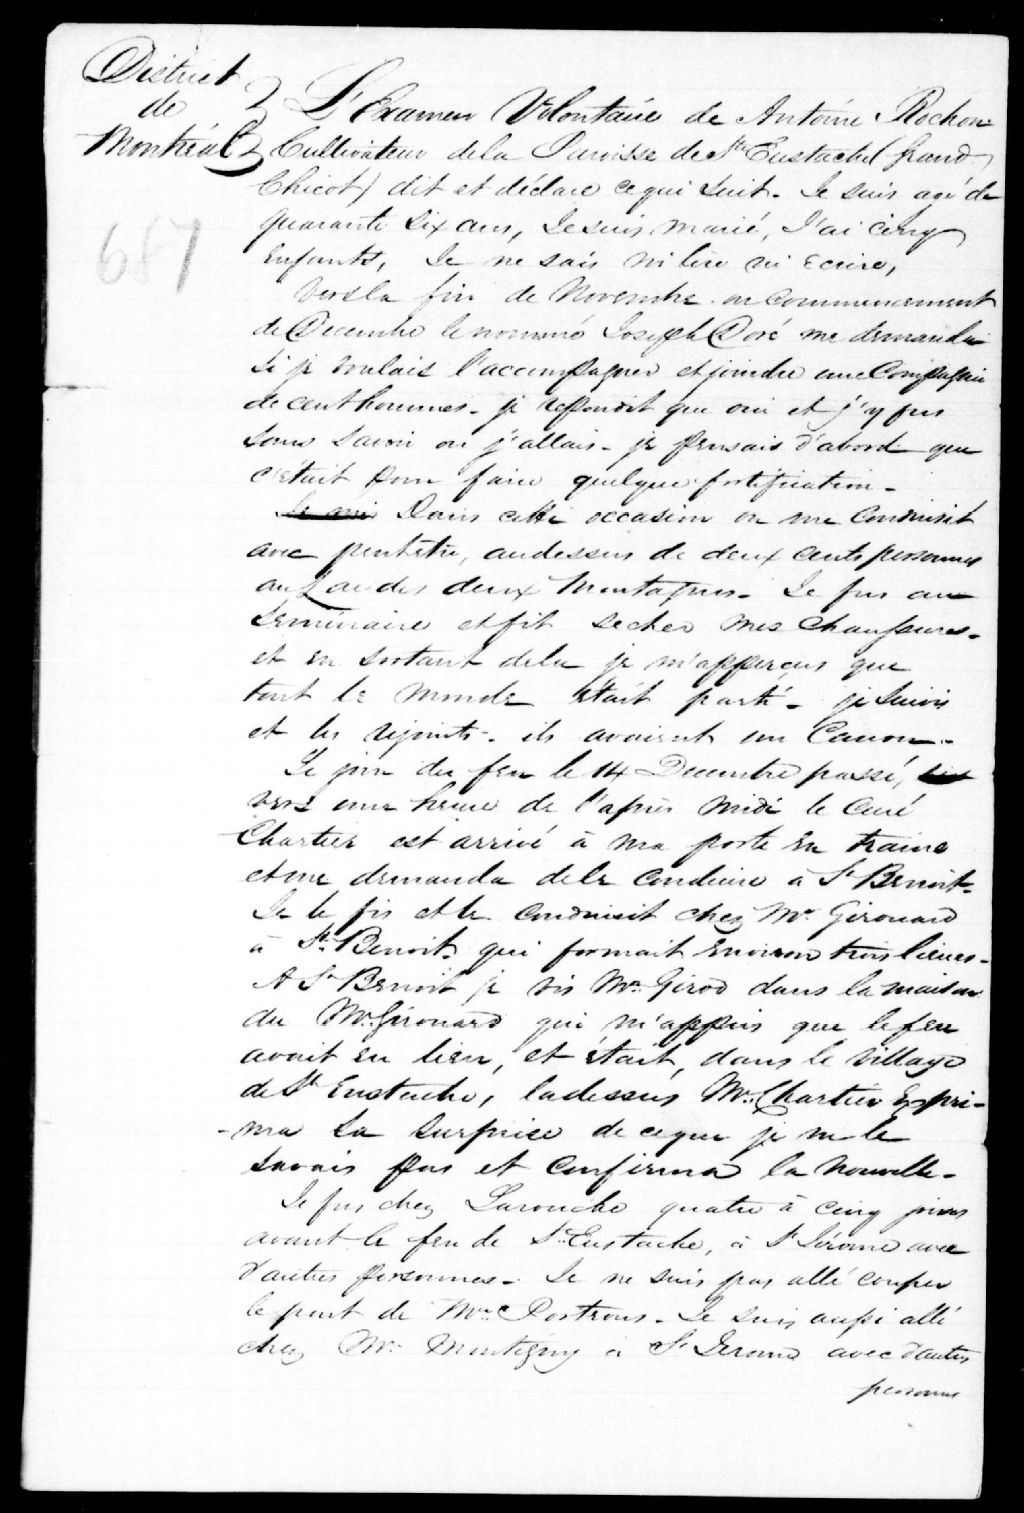 District
de
Montréal
L'Examen Volontaire de Antoine Rochon
Cultivateur de la Paroisse de Ste Eustache (Grand
Chicot) dit et déclare ce qui suit. Je suis agé de
quarante six ans, Je suis marié, J'ai cinq
enfants, Je ne sais ni lire ni Ecrire,
687
Vers la fin de Novembre ou commencement
de Decembre le nommé Joseph Doré me demanda
si je voulais l'accompagner et joindre une Compagnie
de cent hommes. je repondit que oui et j'y fus
sans savoir ou j'allais. je pensais d'abord que
c'était pour faire quelque fortification.
Dans cette occasion on me conduisit
avec peutetre, audessus de deux cents personnes
au Lac des deux Montagnes. Je fus au
Seminaire et fit secher mes chaussures.
et en sortant dela je m'apperçus que
tout le monde était parti. je suivis
et les rejoints. ils avaient un Canon.
Le jour du feu le 14 Decembre passé,
vers une heure de l'après midi le Curé
Chartier est arrivé à ma porte en traine
et me demanda de le conduire à St Benoit.
Je le fis et le conduisit chez Mr. Girouard
à St. Benoit qui formait environ trois lieues.
A St Benoit je vis Mr. Girod dans la maison
du Mr. Girouard qui m'appris que le feu
avait eu lieu, et était, dans le village
de St Eustache, ladessus Mr. Chartier Expri-
-ma sa surprise de ce que je ne le
savais pas et confirma la nouvelle.
Je fus chez Larouche quatre à cinq jours
avant le feu de St. Eustache, à St Jérome avec
d'autres personnes. Je ne suis pas allé couper
le pont de Mr. Postrous. Je suis aussi allé
chez Mr. Montigny à St Jerome avec d'autres
personnes